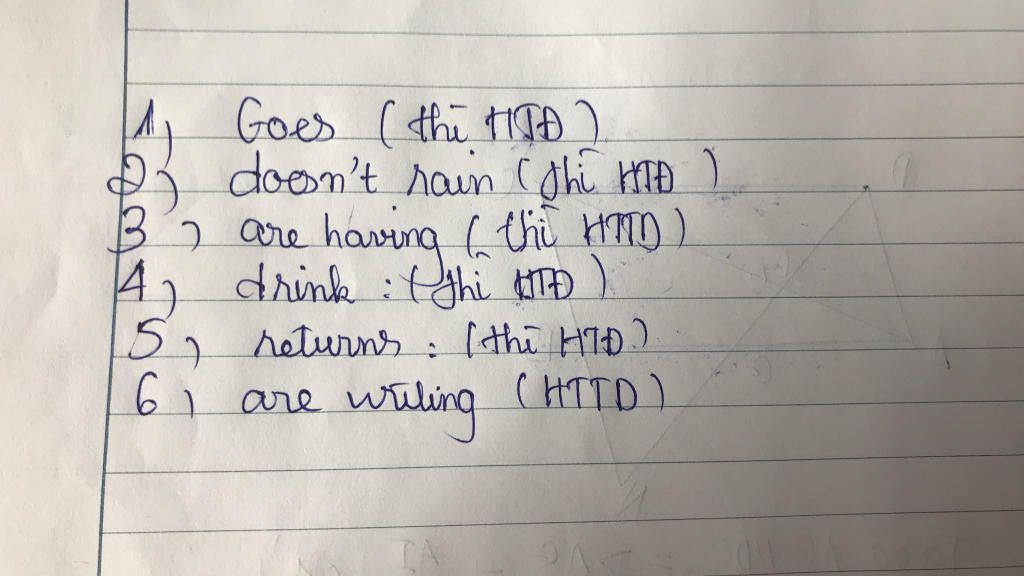 1) Goes (thì HTĐ)
2) doesn't rain (thì HTĐ)
3) are having (thì HTTD)
4) drink : (thì HTĐ)
5) returns : (thì HTĐ)
6) are writing (HTTD)